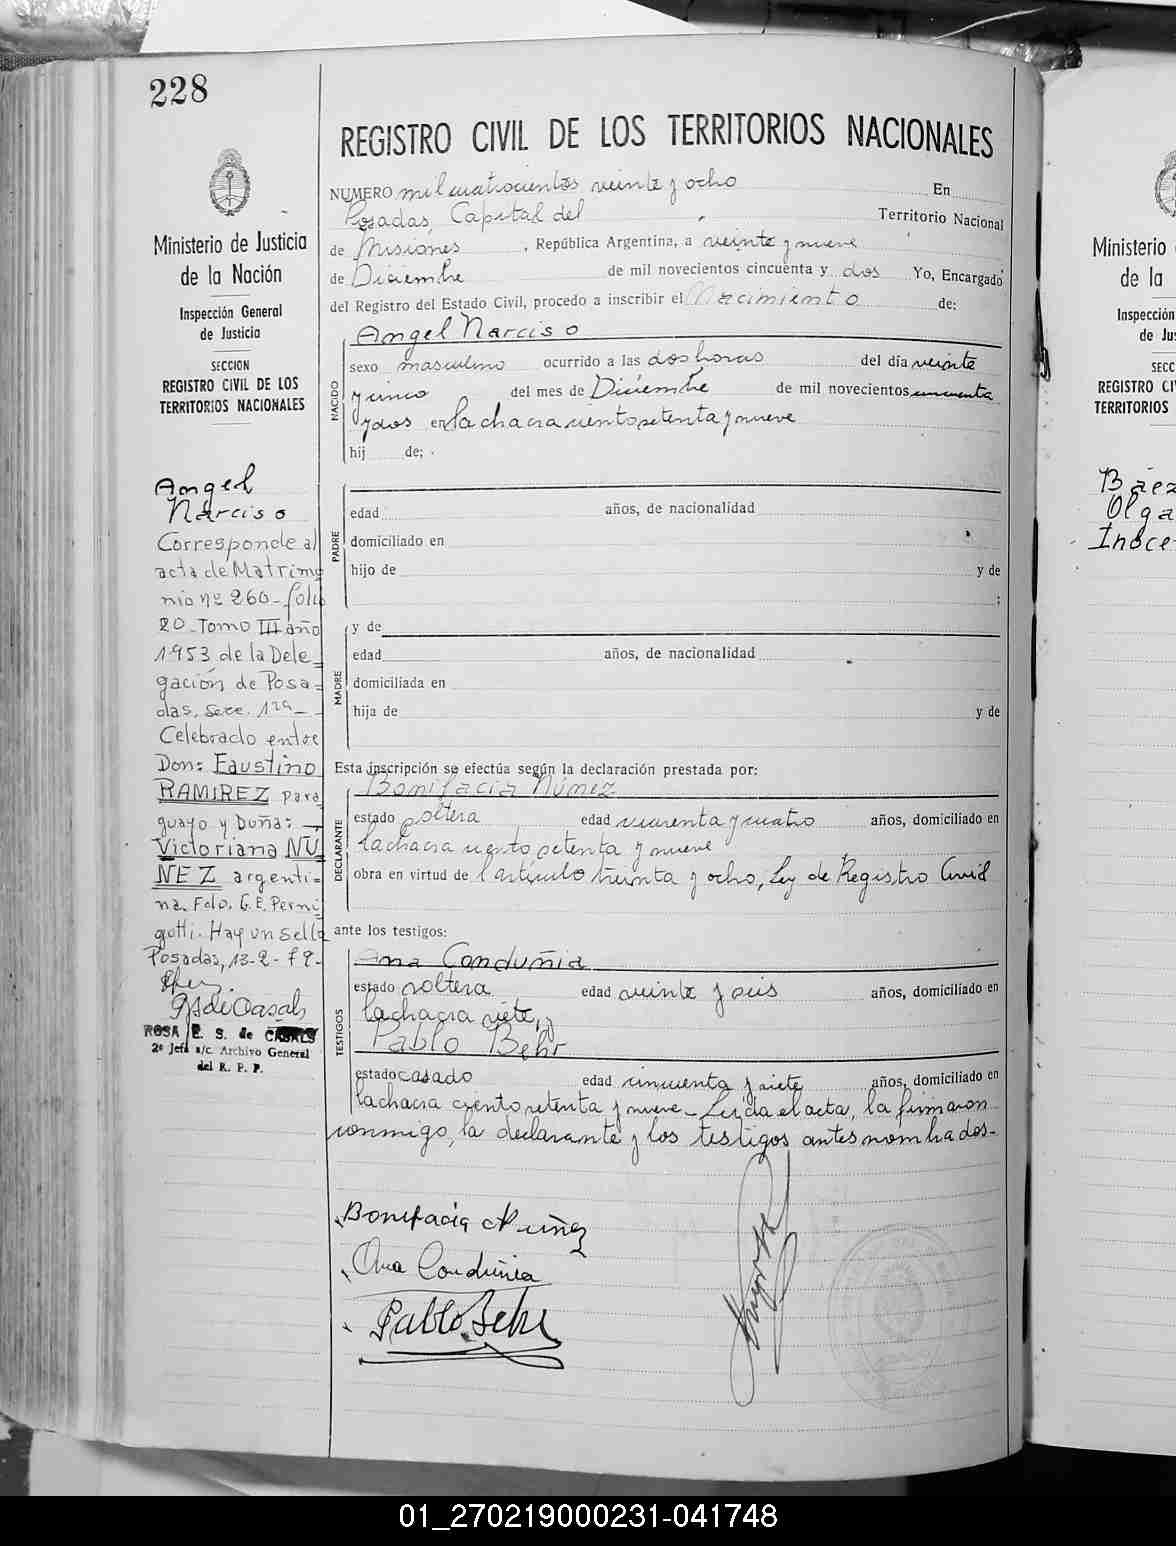 228
REGISTRO CIVIL DE LOS TERRITORIOS NACIONALES
NUMERO mil cuatrocientos veinte y ocho En
Posadas, Capital del Territorio Nacional
de Misiones, República Argentina, a veinte y nueve
de Diciembre de mil novecientos cincuenta y dos Yo, Encargado
del Registro del Estado Civil, procedo a inscribir el Nacimiento de:
NACIDO
Angel Narciso
sexo masculino ocurrido a las dos horas del día veinte
y cinco del mes de Diciembre de mil novecientos cincuenta
y dos en la chacra ciento setenta y nueve
hij de;
PADRE
edad años, de nacionalidad
domiciliado en
hijo de y de
;
MADRE
y de
edad años, de nacionalidad
domiciliada en
hija de y de
Esta inscripción se efectúa según la declaración prestada por:
DECLARANTE
Bonifacia Núnez
estado soltera edad cuarenta y cuatro años, domiciliado en
la chacra ciento setenta y nueve
obra en virtud de l artículo treinta y ocho, Ley de Registro Civil
ante los testigos:
TESTIGOS
Ana Conduñia
estado soltera edad veinte y seis años, domiciliado en
la chacra siete, y
Pablo Behr
estado casado edad cincuenta y siete años, domiciliado en
la chacra ciento setenta y nueve. Leída el acta, la firmaron
conmigo, la declarante y los testigos antes nombrados.-
Bonifacia Nuñez
Ana Conduñia
Pablo Behr
Ministerio de Justicia
de la Nación
Inspección General
de Justicia
SECCION
REGISTRO CIVIL DE LOS
TERRITORIOS NACIONALES
Angel
Narciso
Corresponde al
acta de Matrimo
nio nº 260- folio
20-Tomo III año
1953 de la Dele_
gación de Posa=
das, secc. 1ra_
Celebrado entre
Don: Faustino
RAMIREZ para
guayo y Doña:
Victoriana NÚ
ÑEZ argenti=
na. Fdo. G.E. Perni
gotti. Hay un sello
Posadas, 13-2-79-
ROSA E. S. de CASALS
2º Jefe a/c. Archivo General
del R. P. P.
Ministerio
de la
Inspección
de Jus
SECC
REGISTRO CI
TERRITORIOS
Báez
Olga
Inoce
01_270219000231-041748